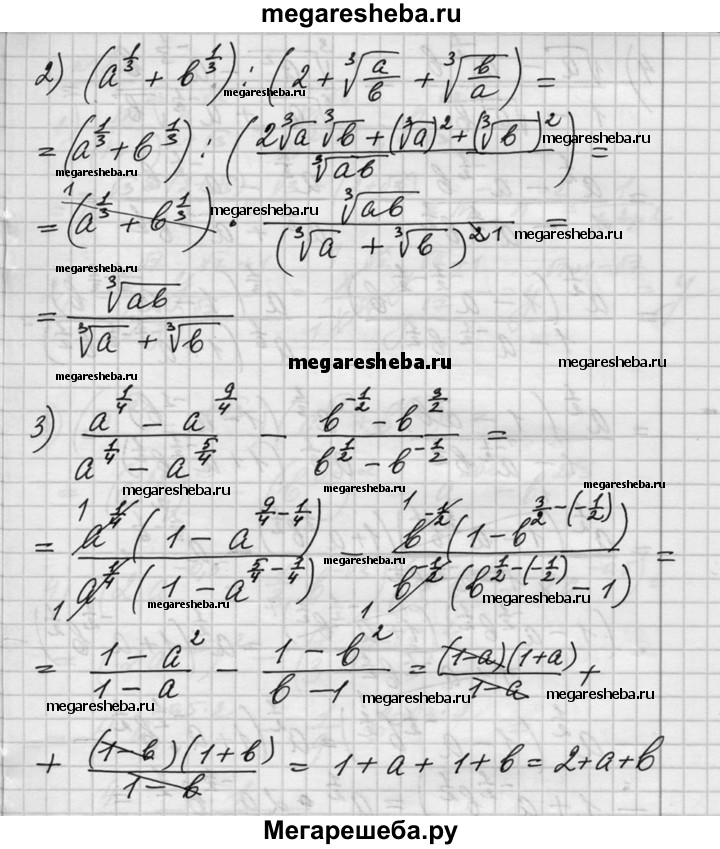 megaresheba.ru
2) (a^{1/3} + b^{1/3}) : (2 + ∛(a/b) + ∛(b/a)) =
megareshеba.ru megaresheba.ru
= (a^{1/3} + b^{1/3}) : ((2∛a ∛b + (∛a)^2 + (∛b)^2)/∛(ab)) =
megaresheba.ru megaresheba.ru
= (a^{1/3} + b^{1/3})^1 · ∛(ab)/(∛a + ∛b)^{2 1} =
megaresheba.ru megaresheba.ru
megaresheba.ru
= ∛(ab)/(∛a + ∛b)
megaresheba.ru megaresheba.ru
megaresheba.ru
3) (a^{1/4} - a^{9/4})/(a^{1/4} - a^{5/4}) - (b^{-1/2} - b^{3/2})/(b^{1/2} - b^{-1/2}) =
megaresheba.ru megaresheba.ru
= (1 a^{1/4} (1 - a^{9/4 - 1/4}))/(1 a^{1/4} (1 - a^{5/4 - 1/4})) - (1 b^{-1/2} (1 - b^{3/2 - (-1/2)}))/(1 b^{-1/2} (b^{1/2 - (-1/2)} - 1)) =
megaresheba.ru megaresheba.ru megaresheba.ru
= (1 - a^2)/(1 - a) - (1 - b^2)/(b - 1) = ((1-a)(1+a))/(1-a) +
megaresheba.ru megaresheba.ru megaresheba.ru
+ ((1-b)(1+b))/(1-b) = 1 + a + 1 + b = 2 + a + b
Мегарешеба.ру